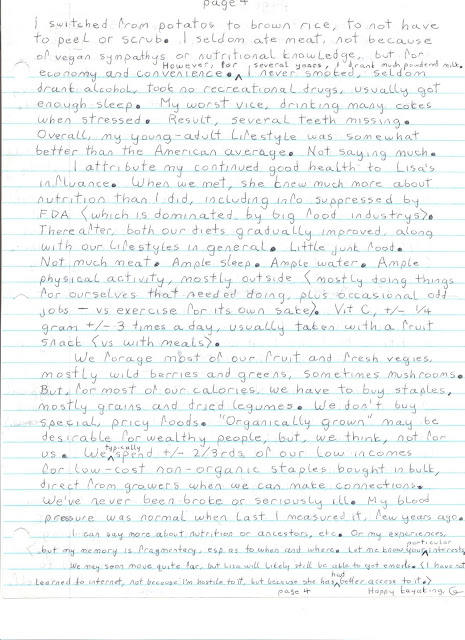 page 4
I switched from potatos to brown rice, to not have
to peel or scrub. I seldom ate meat, not because
of vegan sympathys or nutritional knowledge, but for
However, for several years, I drank much powdered milk.
economy and convenience. ^ I never smoked, seldom
drank alcohol, took no recreational drugs, usually got
enough sleep. My worst vice, drinking many cokes
when stressed. Result, several teeth missing.
Overall, my young-adult lifestyle was somewhat
better than the American average. Not saying much.
I attribute my continued good health to Lisa's
influance. When we met, she knew much more about
nutrition than I did, including info suppressed by
FDA (which is dominated by big food industrys).
Thereafter, both our diets gradually improved, along
with our lifestyles in general. Little junk food.
Not much meat. Ample sleep. Ample water. Ample
physical activity, mostly outside (mostly doing things
for ourselves that needed doing, plus occasional odd
jobs — vs exercise for its own sake). Vit C, +/- 1/4
gram +/- 3 times a day, usually taken with a fruit
snack (vs with meals).
We forage most of our fruit and fresh vegies,
mostly wild berries and greens, sometimes mushrooms.
But, for most of our calories, we have to buy staples,
mostly grains and dried legumes. We don't buy
special, pricy foods. "Organically grown" may be
desirable for wealthy people, but, we think, not for
typically
us. We ^ spend +/- 2/3rds of our low incomes
for low-cost non-organic staples bought in bulk,
direct from growers when we can make connections.
We've never been broke or seriously ill. My blood
pressure was normal when last I measured it, few years ago.
I can say more about nutrition or ancestors, etc. Or my experiences,
particular
but my memory is fragmentary, esp as to when and where. Let me know your ^ interests.
We may soon move quite far, but Lisa will likely still be able to get emails. (I have not
had
learned to internet, not because I'm hostile to it, but because she has ^ better access to it.)
page 4 Happy kayaking,